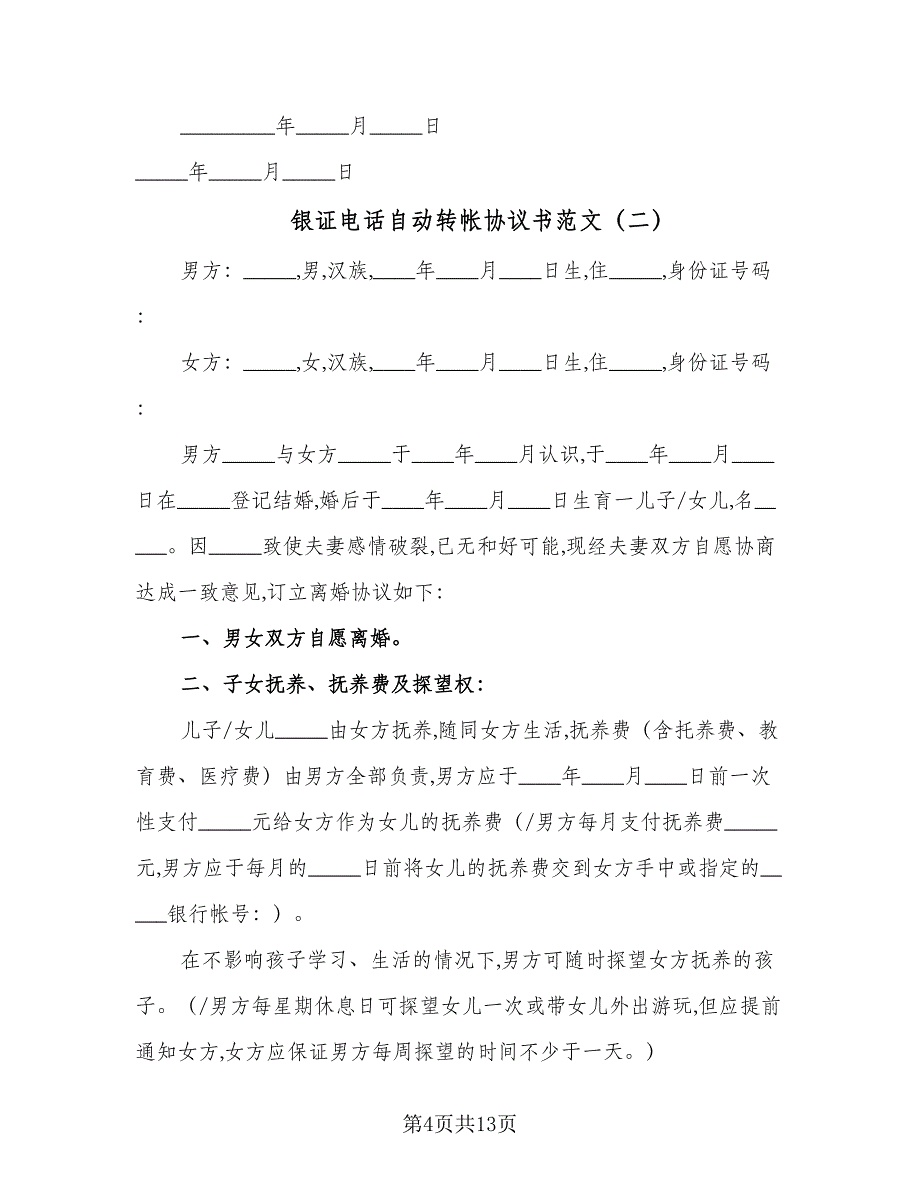 _________年_____月_____日
_____年_____月_____日
银证电话自动转帐协议书范文（二）
男方：_____,男,汉族,____年____月____日生,住_____,身份证号码
：
女方：_____,女,汉族,____年____月____日生,住_____,身份证号码
：
男方_____与女方_____于____年____月认识,于____年____月____
日在_____登记结婚,婚后于____年____月____日生育一儿子/女儿,名__
___。因_____致使夫妻感情破裂,已无和好可能,现经夫妻双方自愿协商
达成一致意见,订立离婚协议如下:
一、男女双方自愿离婚。
二、子女抚养、抚养费及探望权:
儿子/女儿_____由女方抚养,随同女方生活,抚养费（含托养费、教
育费、医疗费）由男方全部负责,男方应于____年____月____日前一次
性支付_____元给女方作为女儿的抚养费（/男方每月支付抚养费_____
元,男方应于每月的_____日前将女儿的抚养费交到女方手中或指定的__
___银行帐号：）。
在不影响孩子学习、生活的情况下,男方可随时探望女方抚养的孩
子。（/男方每星期休息日可探望女儿一次或带女儿外出游玩,但应提前
通知女方,女方应保证男方每周探望的时间不少于一天。）
第4页共13页